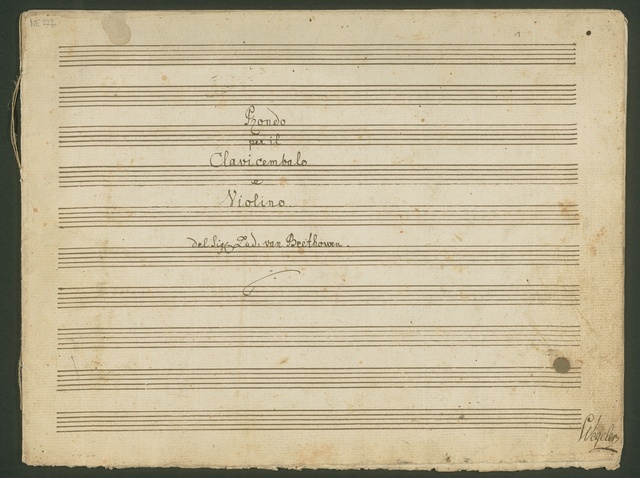 NE 222
1
Rondo
per il
Clavicembalo
e
Violino.
del Sigr Lud. van Beethowen.
Wegeler